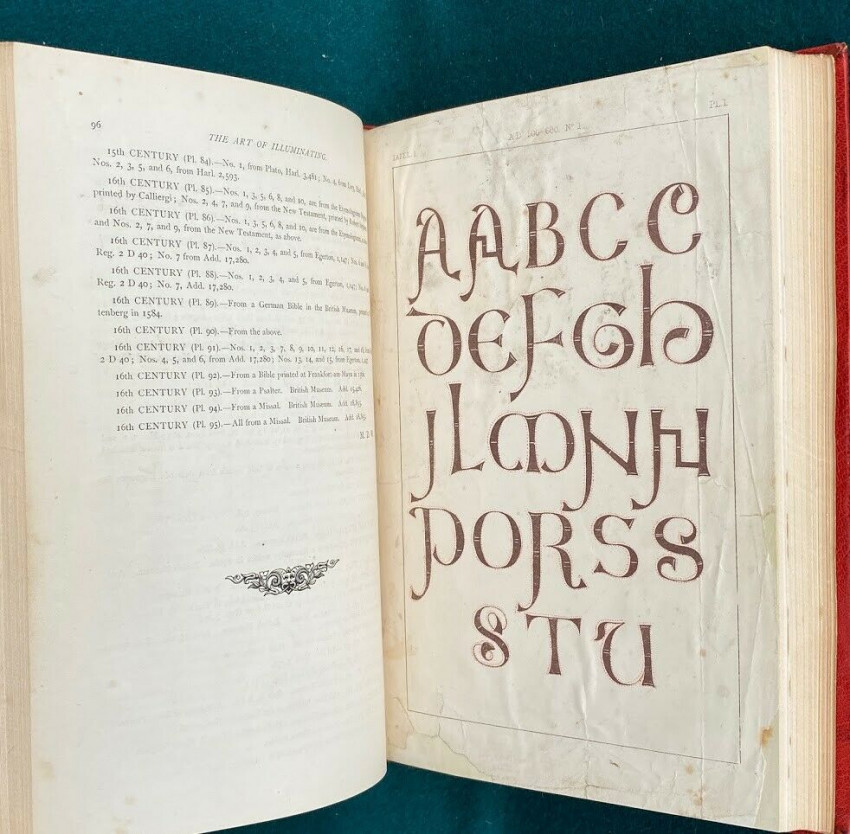 96
THE ART OF ILLUMINATING.
15th CENTURY (Pl. 84).—No. 1, from Plato, Harl. 3,481; No. 4, from
Nos. 2, 3, 5, and 6, from Harl. 2,593.
16th CENTURY (Pl. 85).—Nos. 1, 3, 5, 6, 8, and 10, are from the Etymologicum
printed by Calliergi; Nos. 2, 4, 7, and 9, from the New Testament, printed by Robert
16th CENTURY (Pl. 86).—Nos. 1, 3, 5, 6, 8, and 10, are from the Etymologicum,
and Nos. 2, 7, and 9, from the New Testament, as above.
16th CENTURY (Pl. 87).—Nos. 1, 2, 3, 4, and 5, from Egerton, 1,147; Nos.
Reg. 2 D 40; No. 7 from Add. 17,280.
16th CENTURY (Pl. 88).—Nos. 1, 2, 3, 4, and 5, from Egerton, 1,147;
Reg. 2 D 40; No. 7, Add. 17,280.
16th CENTURY (Pl. 89).—From a German Bible in the British Museum,
tenberg in 1584.
16th CENTURY (Pl. 90).—From the above.
16th CENTURY (Pl. 91).—Nos. 1, 2, 3, 7, 8, 9, 10, 11, 12, 16, 17, and
2 D 40; Nos. 4, 5, and 6, from Add. 17,280; Nos. 13, 14, and 15, from Egerton,
16th CENTURY (Pl. 92).—From a Bible printed at Frankfort am Main in
16th CENTURY (Pl. 93).—From a Psalter. British Museum. Add.
16th CENTURY (Pl. 94).—From a Missal. British Museum. Add.
16th CENTURY (Pl. 95).—All from a Missal. British Museum. Add.
PL.1
A.D. 100-600. Nº 1.
A A B C C
D E F G h
J L M N N
P O R S S
S T U